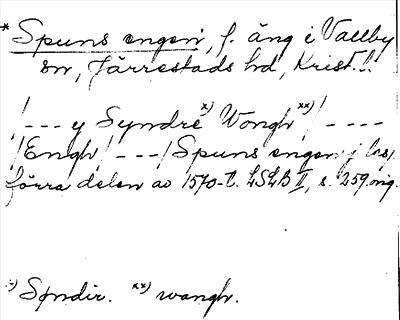 * Spuns engen, f. äng i Vallby
sn, Järrestads hd, Krist. l.
/--- y Syndre x) Wongh xx) / ----
/Engh/ ---/ Spuns engen j hs,
förra delen av 1570-t. LSLB II, s. 259 orig.
x) Spndir. xx) wangh.